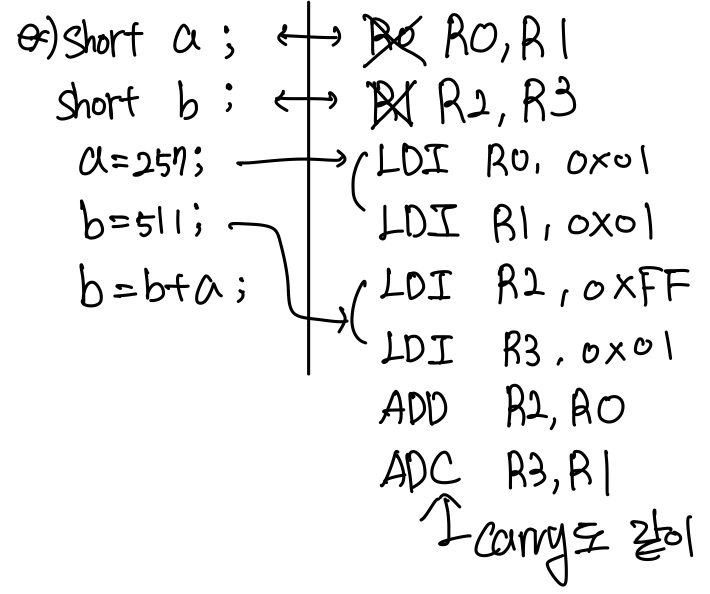 ex) short a ; ↔ R0 R0, R1
short b ; ↔ R1 R2, R3
a=257; → LDI R0, 0x01
LDI R1, 0x01
b=511; → LDI R2, 0xFF
LDI R3, 0x01
b=b+a;
ADD R2, R0
ADC R3, R1
carry도 같이